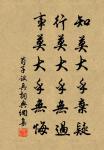 知莫大乎棄疑
行莫大乎無過
事莫大乎無悔
荀子議兵詞典網集